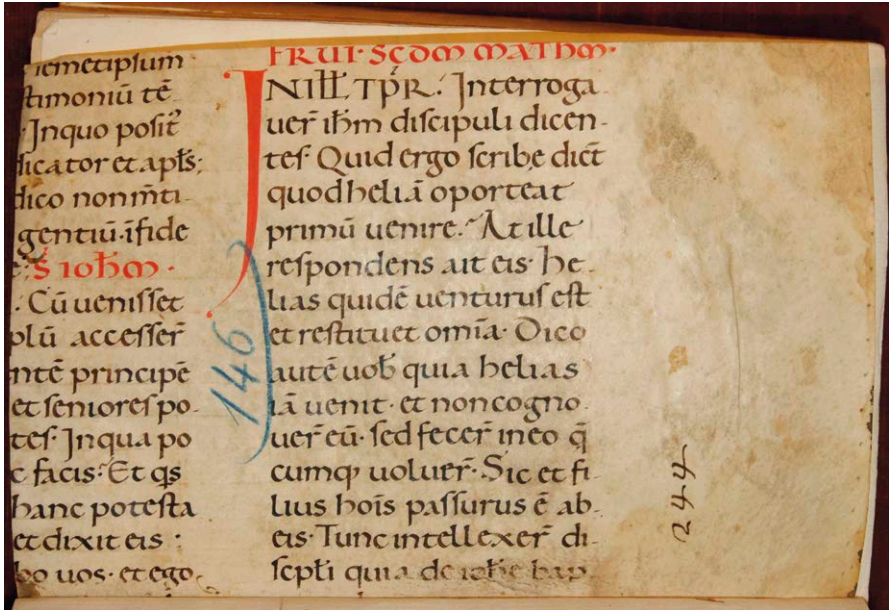 temetipsum
stimoniū tē
Inquo posit᷑
dicator et apƚs;
dico non m̄ti
gentiū· ı̄fide
S̄ IOħM·
Cū uenisset
plū accesser̄
ntē principē
et seniores po-
tes· Inqua po
c facis· Et qs
hanc potesta
et dixit eis :
bo uos· et ego
FRUI· SC̄DM MATHM·
INIƚƚ· TP̄R· Interroga
uer̄ iħm discipuli dicen-
tes· Quid ergo scribe dic̄t
quod heliā oporteat
primū uenire· At ille
respondens ait eis· he-
lias quidē uenturus est
et restituet om̄ia· Dico
autē uob̄ quia helias
iā uenit· et non cogno-
uer̄ eū· sed fecer̄ in eo q̄
cumq; uoluer̄· Sic et fi-
lius hoīs passurus ē ab
eis· Tunc intellexer̄ di-
scipƚi quia de ioħe bap
146
244